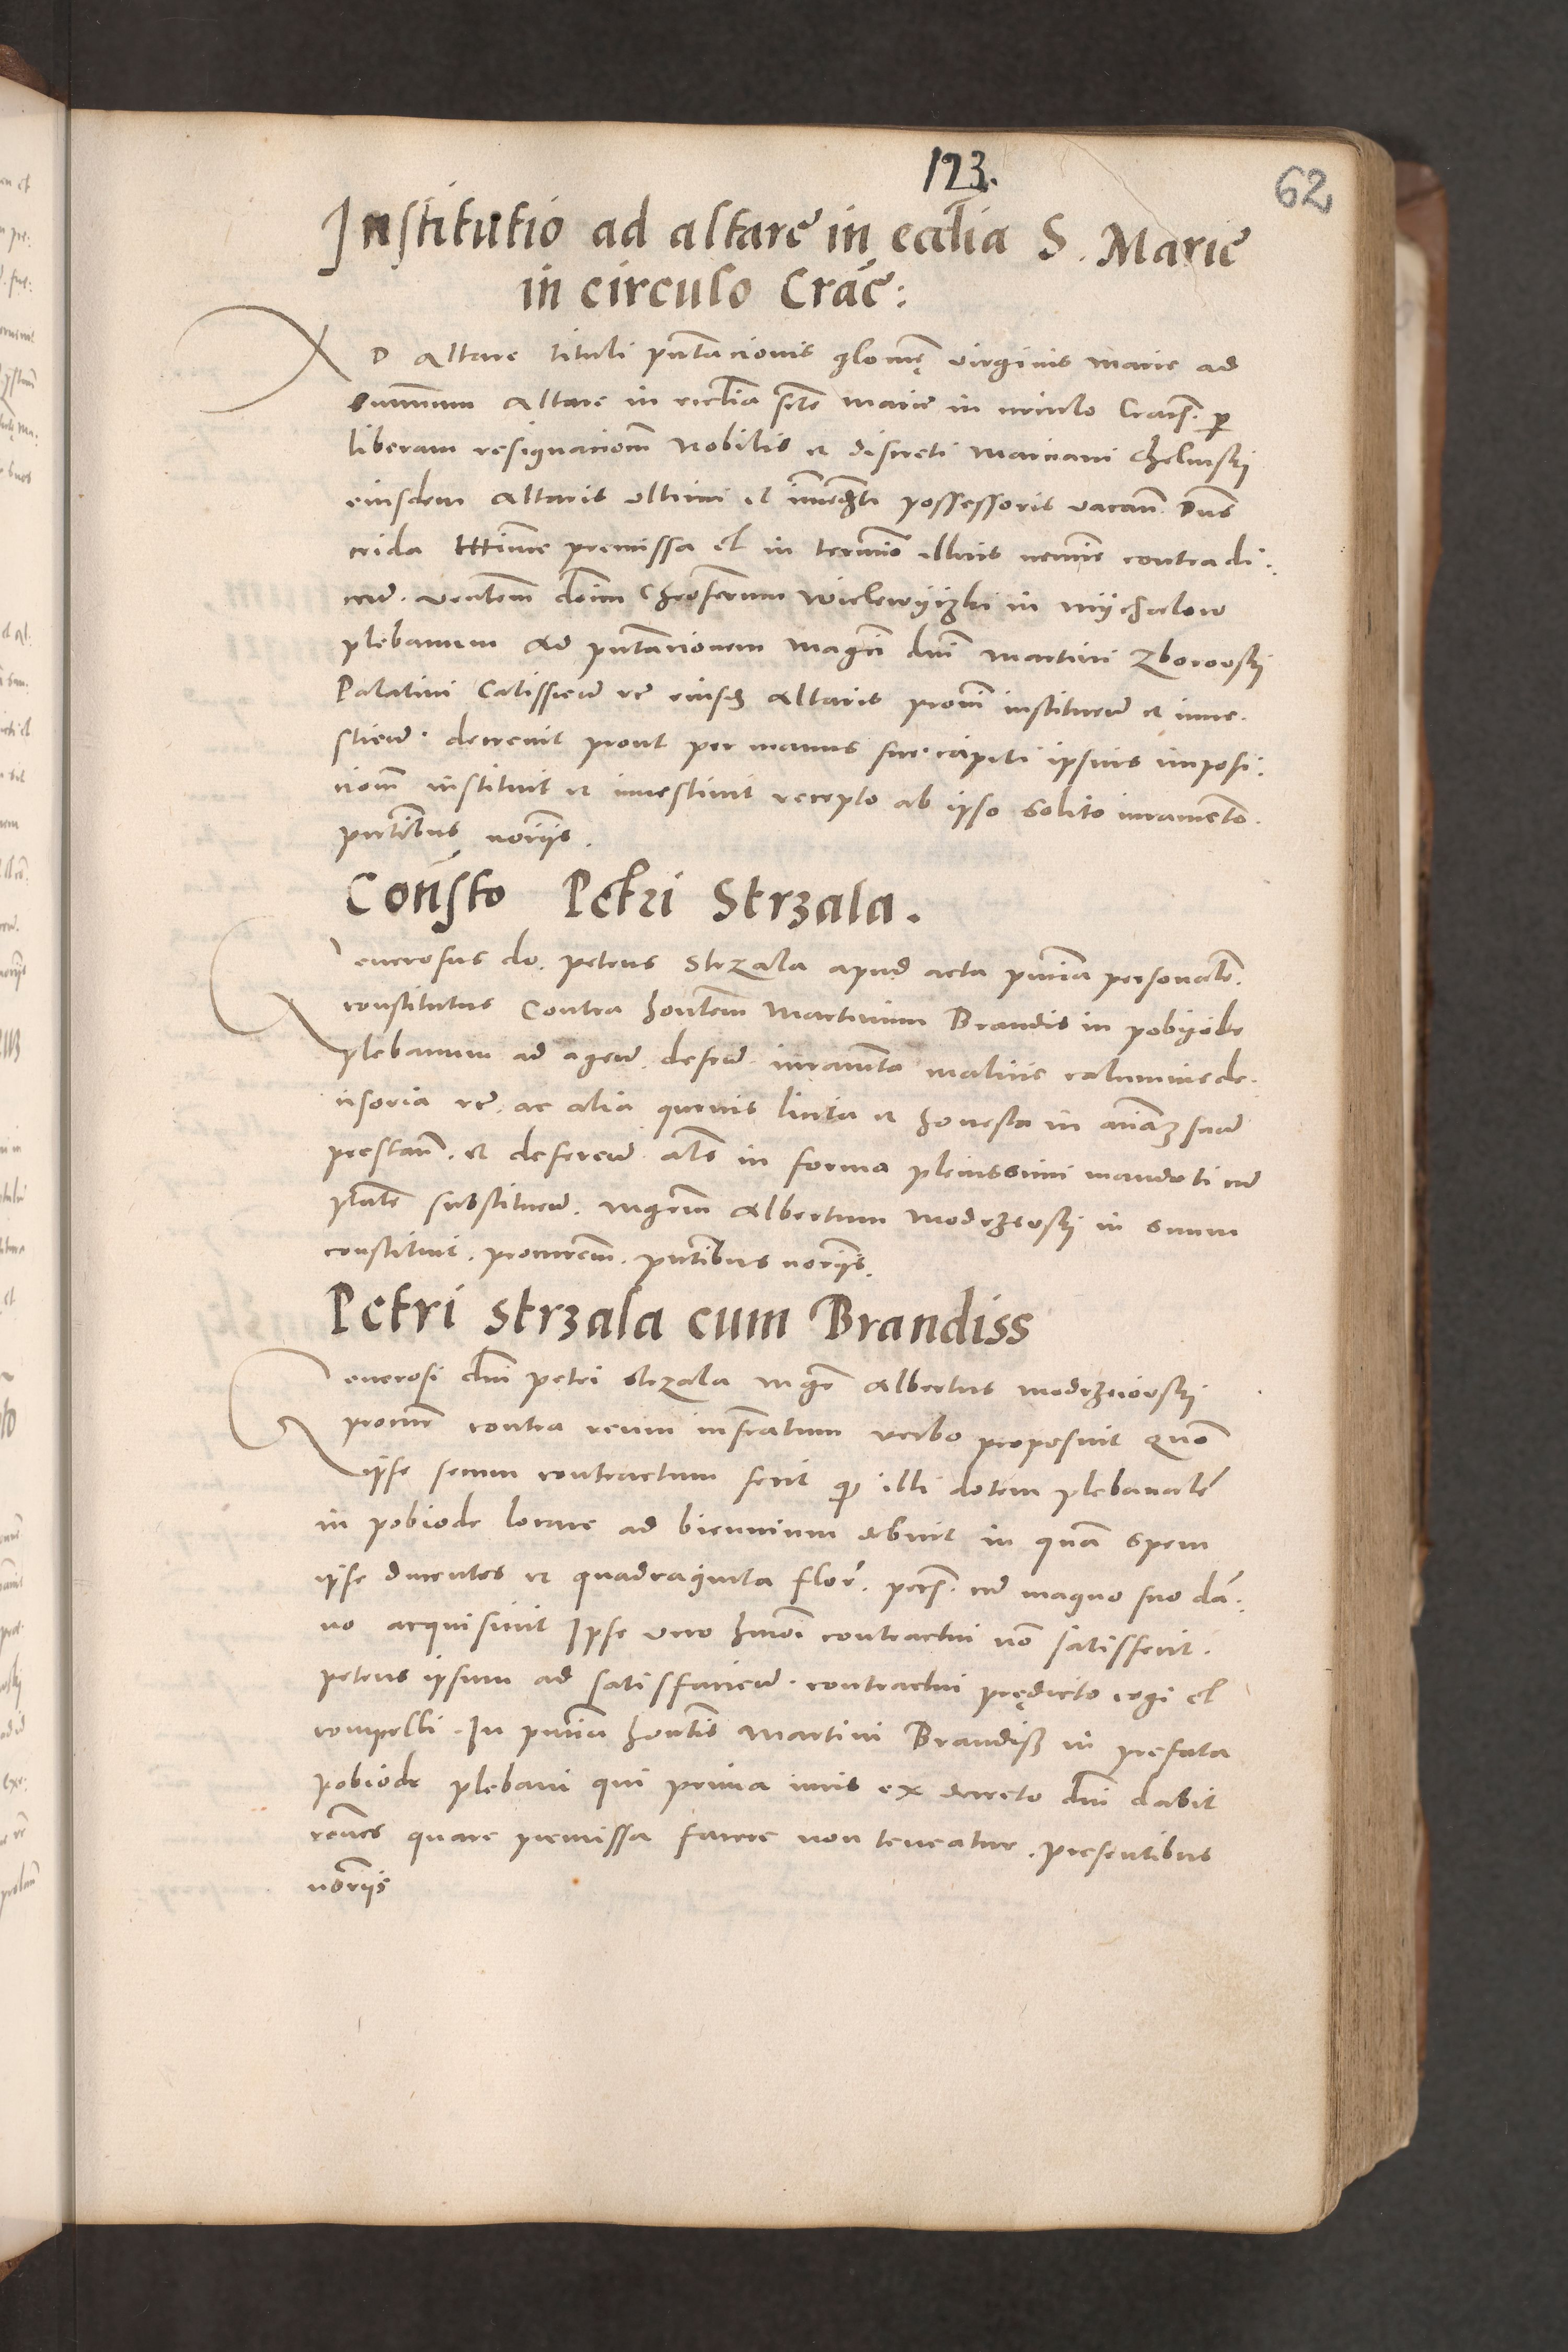 123.
62
Institutio ad altare in ecclia S. Marie
in circulo Crac:
AD Altare tituli pntacionis gloriosę virginis marie ad
summum Altare in ecclia scte marie in circulo Cracs. per
liberam resignacionem Nobilis et discreti marciani Chelmski
eiusdem Altaris ultimi et immediati possessoris vacan. Dns
crida ttime premissa et in termino illius nemine contradi:
cen. venlem dnm Chrisoferum Wielewyczki in mychalow
plebanum ad pntacionem magci dni martini Zborowski
Palatini Calissien etc eiusdem Altaris provi instituen et inve-
stien. decrevit prout per manus sue capiti ipsius imposi:
ciom instituit et investivit recepto ab ipso solito iuramento.
pntibus noriis.
Consto Petri Strzala.
Generosus do. petrus Strzala apud acta pntia personalr.
constitutus Contra honlem Martinum Brandis in pobiode
plebanum ad agen. defen. iuramta malicie calumnie de-
cisoria etc. ac alia quevis licita et honesta in aniam suam
prestan. et deferen. als in forma plenissimi mandati cum
ptate substituen. mgrem Albertum modrzewski in suum
constituit. procurem. pntibus noriis.
Petri Strzala cum Brandiss
Generosi dni petri Strzala mgr Albertus modrzwowski
procur contra reum infratum verbo proposuit Quo
ipse secum contractum fecit q illi dotem plebanale
in pobiode locare ad biennium debuit in qua spem
ipse ducentos et quadraginta flor. pecs. cum magno suo da:
no acquisivit Ipse vero hmoi contractui no satisfecit.
petens ipsum ad satisfacien. contractui prędicto cogi et
compelli. In pntia honlis Martini Brandiss in prefata
pobiode plebani qui prima iuris ex decreto dni dabit
rones quare premissa facere non teneatur. presentibus
noriis